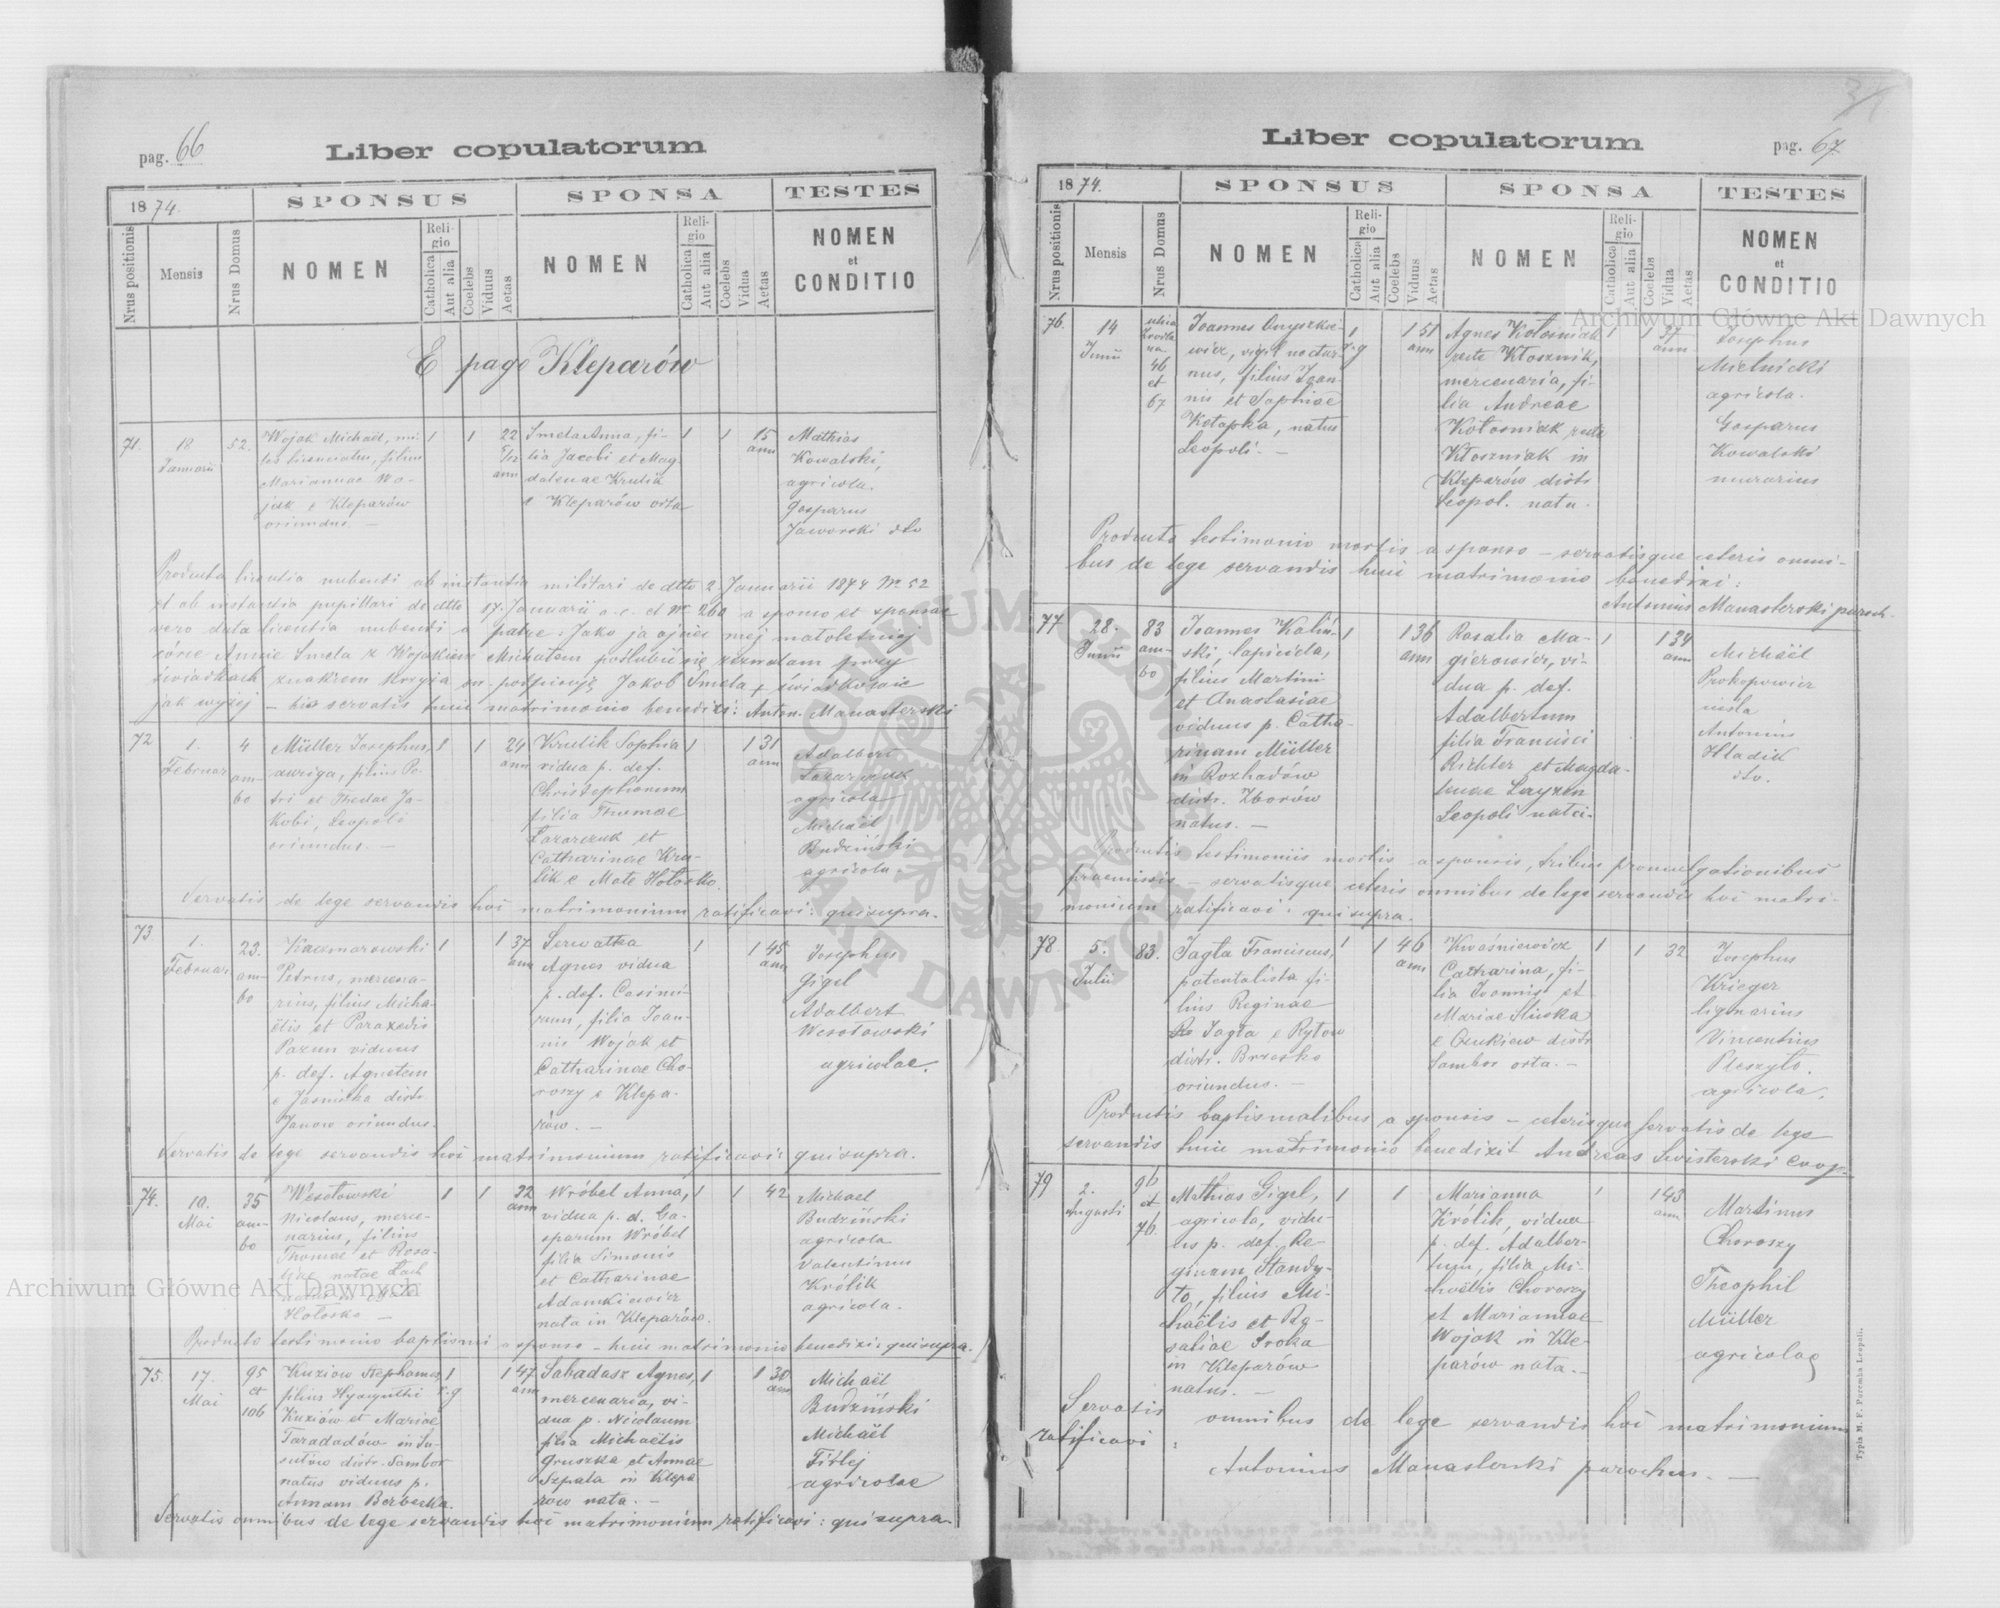 pag. 66
Liber copulatorum
1874.
SPONSUS
SPONSA
TESTES
Nrus positionis
Mensis
Nrus Domus
NOMEN
Religio
Catholica
Aut alia
Coelebs
Viduus
Aetas
NOMEN
Religio
Catholica
Aut alia
Coelebs
Vidua
Aetas
NOMEN
et
CONDITIO
E pago Kleparów
71.
18
Januarii
52.
Wojak Michaël, mi-
les licenciatus, filius
Mariannae Wo-
jak e Kleparów
oriundus. —
1
1
22
ann
Smela Anna, fi-
lia Jacobi et Mag-
dalenae Krulik
e Kleparów orta
1
1
15
ann
Mathias
Kowalski,
agricola.
Gasparus
Jaworski dto
Producta licentia nubendi ab instantia militari de dtto 2 Januarii 1874 Nr 52
et ab instantia pupillari de dtto 17. Januarii a. c. et Nr 260 a sponso et sponsae
vero data licentia nubendi a patre: Jako ja ojciec mej małoletniej
córce Annie Smela z Wojakiem Michałem poślubić się zezwalam przy
świadkach znakiem krzyża podpisuję Jakob Smela + świadkowie
jak wyżej — servatis huic matrimonio benedixi: Anton. Manasterski
72
1.
Februar
4
am-
bo
Müller Josephus,
auriga, filius Pe-
tri et Theclae Ja-
kobi, Leopoli
oriundus. —
1
1
24
ann
Krulik Sophia
vidua p. def.
Christophorum
filia Thomae
Łazarczuk et
Catharinae Kru-
lik e Małe Hołosko.
1
1 31
ann
Adalbert
Łazarczuk
agricola
Michaël
Budziński
agricola.
Servatis de lege servandis hoc matrimonium ratificavi: qui supra.
73
1.
Februar
23.
am-
bo
Kaczmarowski
Petrus, mercena-
rius, filius Micha-
ëlis et Paraxedis
Pazun viduus
p. def. Agnetem
e Jasniska distr.
Janow oriundus.
1
1 37
ann
Serwatka
Agnes vidua
p. def. Casimi-
rum, filia Joan-
nis Wojak et
Catharinae Cho-
roszy e Klepa-
rów. —
1
1 45
ann
Josephus
Gigel
Adalbert
Wesołowski
agricolae.
Servatis de lege servandis hoc matrimonium ratificavi: qui supra.
74.
10.
Mai
35
am-
bo
Wesołowski
Nicolaus, merce-
narius, filius
Thomae et Rosa-
liae natae Łach
Hołosko —
1
1
32
ann
Wróbel Anna,
vidua p. d. Ga-
sparum Wróbel
filia Simonis
et Catharinae
Adamkiewicz
nata in Kleparów.
1
1
42
Michael
Budziński
agricola
Valentinus
Królik
agricola.
Producto testimonio baptismi a sponso — huic matrimonio benedixi: qui supra.
75.
17.
Mai
95
et
106
Kuziow Stephanus,
filius Hyacynthi
Kuziów et Mariae
Taradadów in Su-
natus viduus p.
Annam Berbecka.
1
r. g
1 47
ann
Sabadasz Agnes,
mercenaria, vi-
dua p. Nicolaum
filia Michaëlis
Gruszka et Annae
Szpala in Klepa
row nata. —
1
1 30
ann
Michaël
Budziński
Michaël
Fitlej
agricolae
Servatis omnibus de lege servandis hoc matrimonium ratificavi: qui supra.
pag. 67
Liber copulatorum
1874.
SPONSUS
SPONSA
TESTES
Nrus positionis
Mensis
Nrus Domus
NOMEN
Religio
Catholica
Aut alia
Coelebs
Viduus
Aetas
NOMEN
Religio
Catholica
Aut alia
Coelebs
Vidua
Aetas
NOMEN
et
CONDITIO
76.
14
Junii
46
et
67
Joannes Onyszkie-
wicz, vigil noctur-
nus, filius Joan-
nis et Sophiae
Kotapka, natus
Leopoli. —
1
r. g
1 51
ann
Agnes Kołosniak
recte Kłosznik,
mercenaria, fi-
lia Andreae
Kołosniak recte
Kłoszniak in
Kleparów distr.
Leopol. nata.
1
1 37
ann
Josephus
Mielnicki
agricola.
Gasparus
Kowalski
murarius
Producto testimonio mortis a sponso — servatisque ceteris omni-
bus de lege servandis huic matrimonio benedixi:
Antonius Manasterski paroch.
77
28.
Junii
83
am-
bo
Joannes Kaliń-
ski, lapicida,
filius Martini
et Anastasiae
viduus p. Catha-
rinam Müller
in Rozhadów
distr. Zborów
natus. —
1
1 36
ann
Rosalia Ma-
gierowicz, vi-
dua p. def.
Adalbertum
filia Francisci
Richter et Magda-
lenae Layzen
Leopoli nata.
1
1 34
ann
Michaël
Prokopowicz
Antonius
Hladik
dto.
Productis testimoniis mortis a sponsis, tribus promulgationibus
praemissis — servatisque ceteris omnibus de lege servandis hoc matri-
monium ratificavi: qui supra.
78
5.
Julii
83.
Jagta Franciscus,
fi-
lius Reginae
Jagta e Rytow
distr. Brzesko
oriundus. —
1
1
46
ann
Kwaśniewicz
Catharina, fi-
lia Joannis et
Mariae Sliwka
distr.
Sambor orta. —
1
1
32
Josephus
Krieger
lignarius
Vincentius
Pleszyło.
agricola.
Productis baptismalibus a sponsis — ceterisque servatis de lege
servandis huic matrimonio benedixit Andreas Swisterski Coop.
79
2.
Augusti
96
et
76.
Mathias Gigel,
agricola, vidu-
us p. def. Re-
ginam Standy-
to, filius Mi-
chaëlis et Ro-
saliae Sroka
in Kleparów
natus. —
1
1
Marianna
Królik, vidua
p. def. Adalber-
tum, filia Mi-
chaëlis Choroszy
et Mariannae
Wojak in Kle-
parów nata. —
1
1 43
ann
Martinus
Choroszy
Theophil
Müller
agricolae
Servatis omnibus de lege servandis hoc matrimonium
ratificavi:
Antonius Manasterski parochus. —
Typis M. F. Poremba Leopoli.
Archiwum Główne Akt Dawnych
Archiwum Główne Akt Dawnych
ARCHIWUM GŁÓWNE AKT DAWNYCH